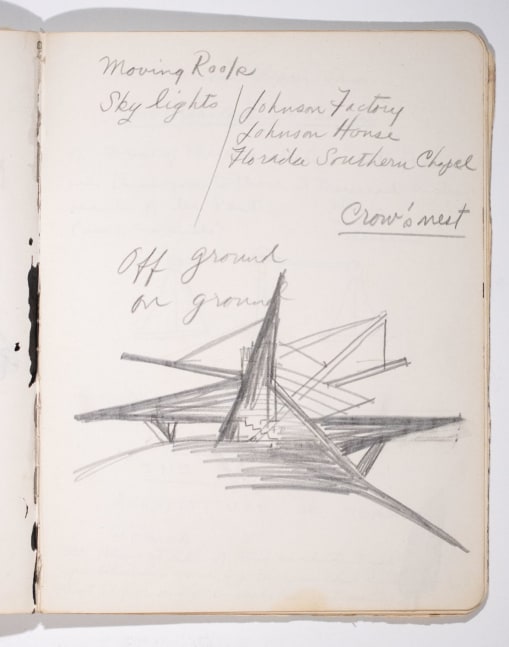 Moving Roofs
Sky lights / Johnson Factory
Johnson House
Florida Southern Chapel
Crow's nest
Off ground
on ground